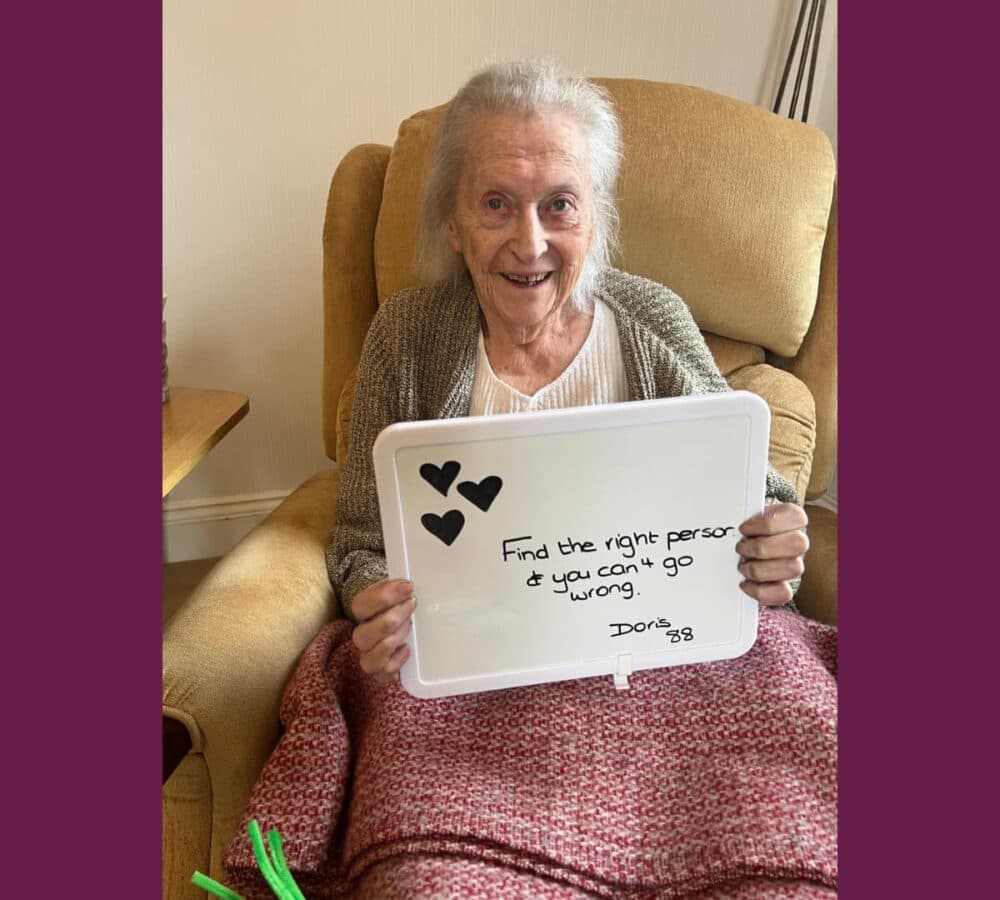 Find the right person
& you can't go
wrong.
Doris
88